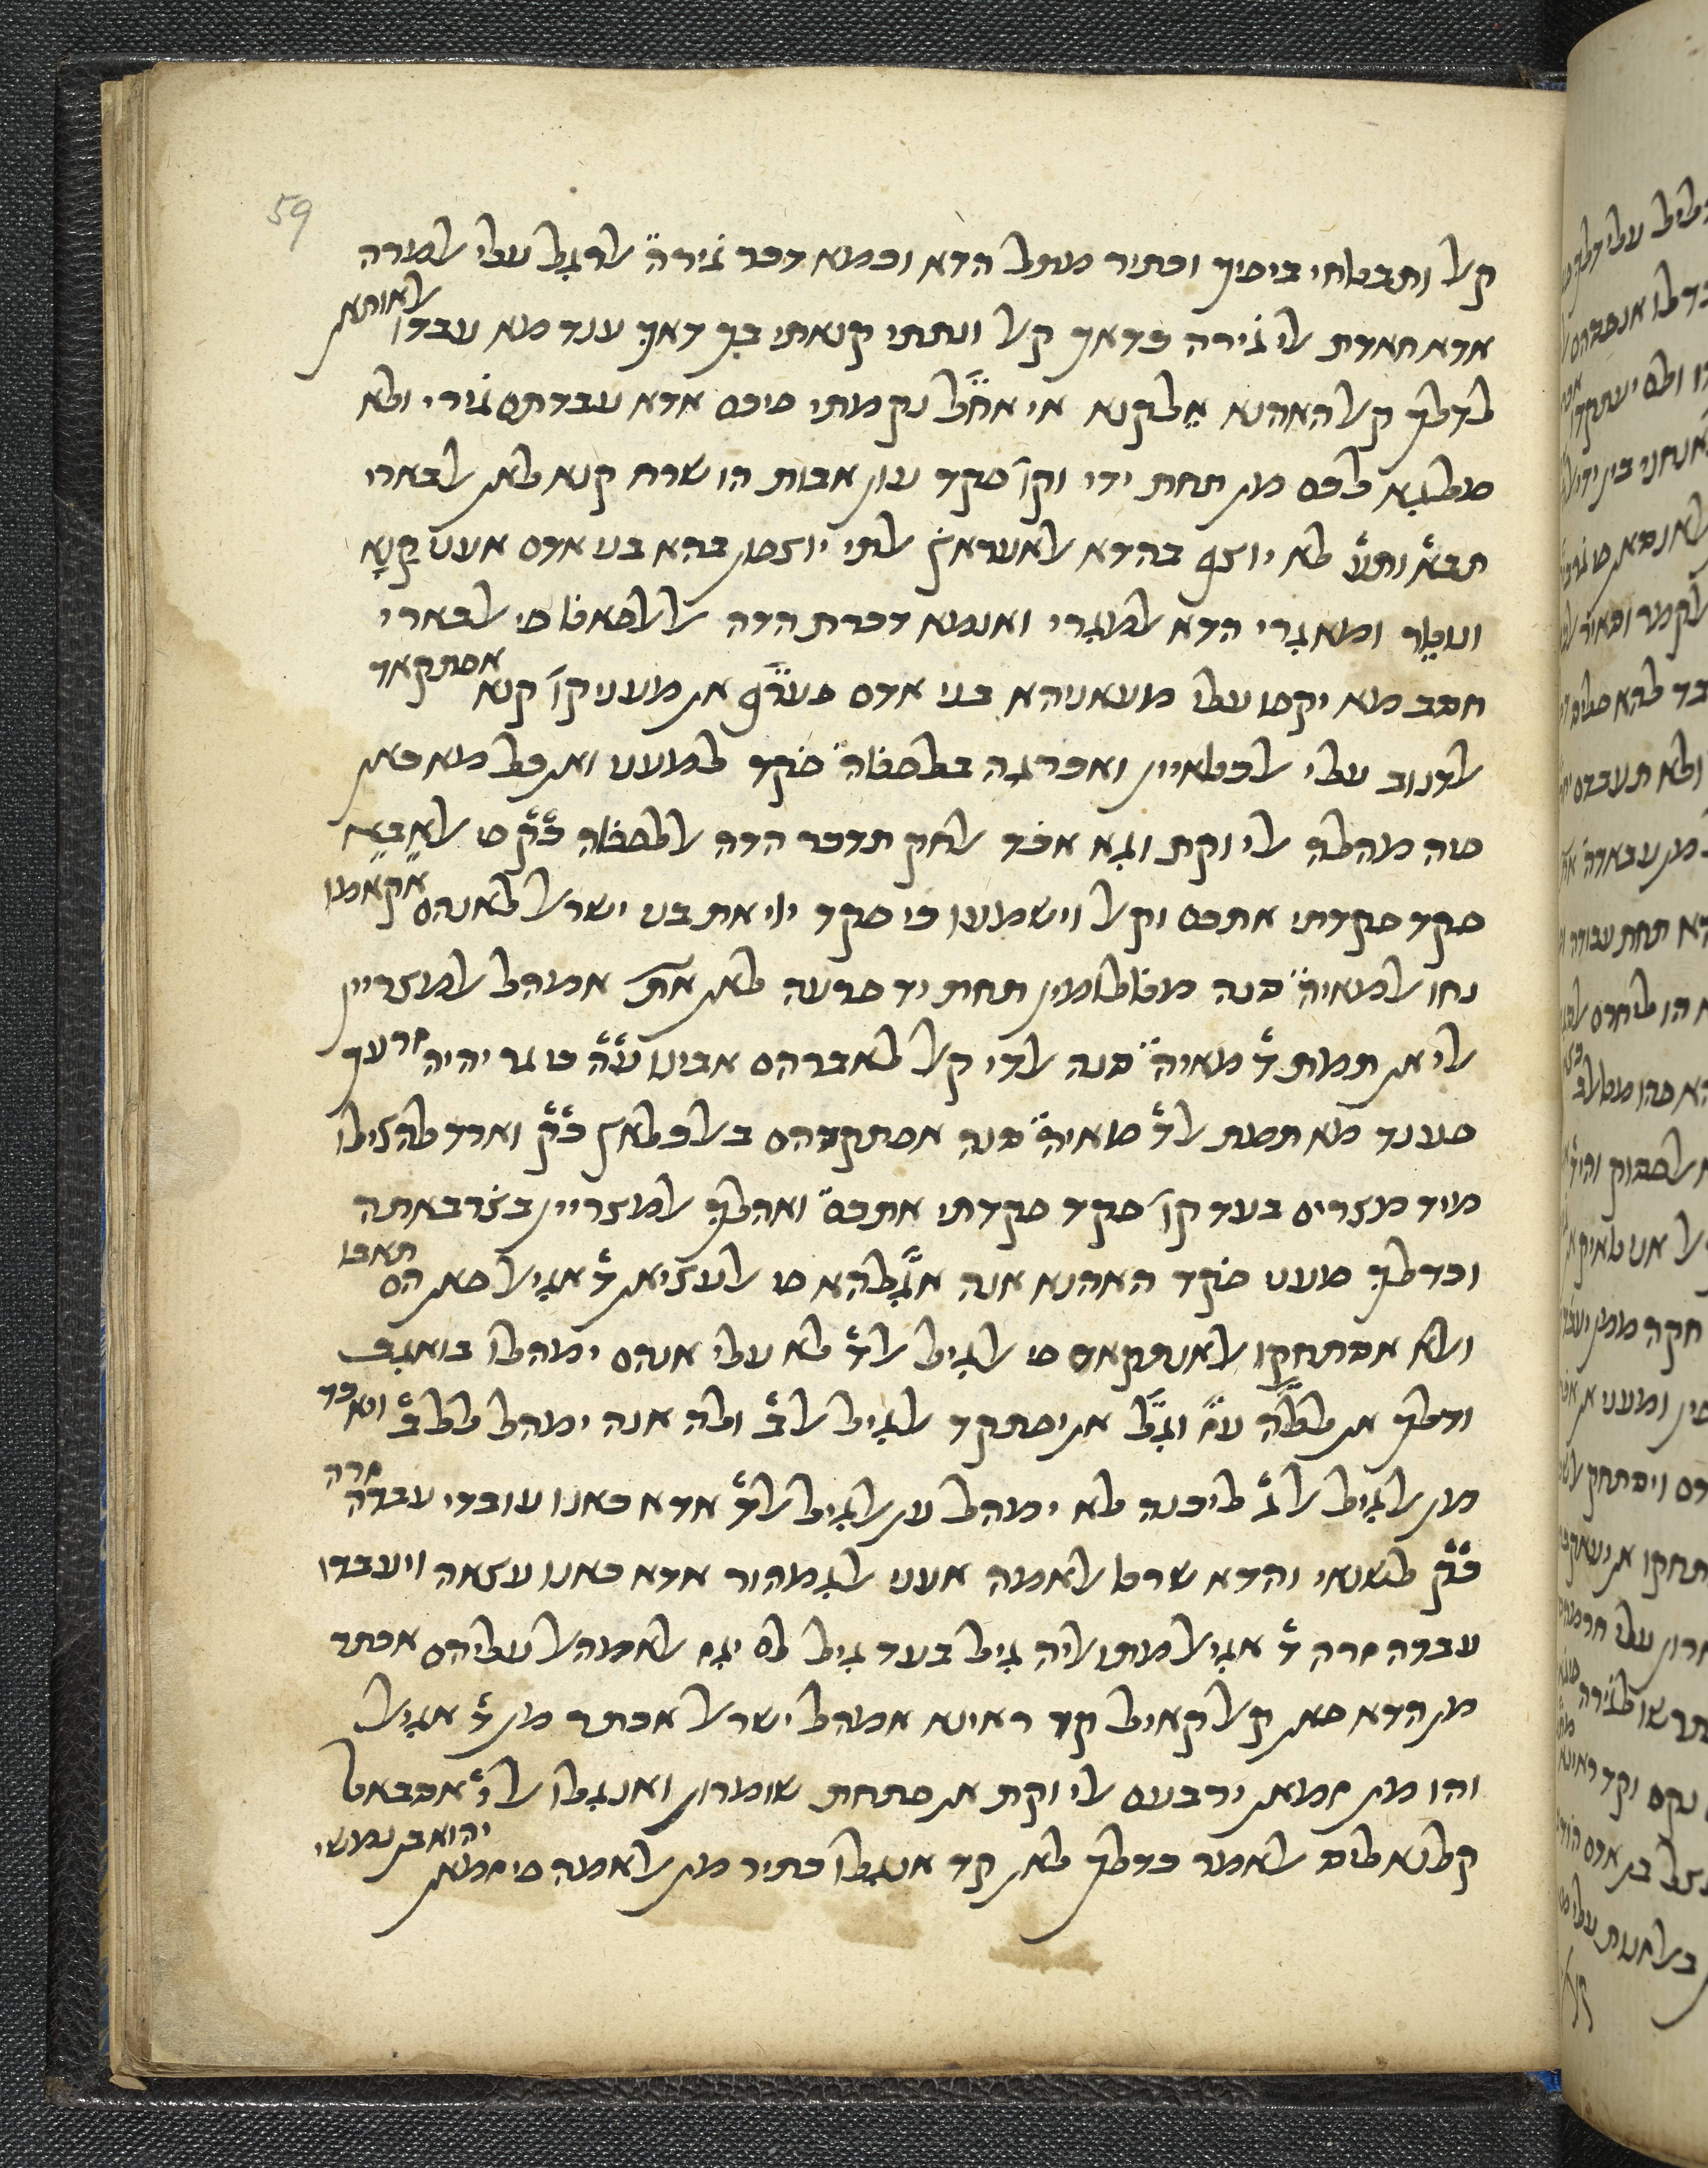 59
קאל ותבטחי ביפיך וכתיר מתל הדא וכמא דכר גירה אלרגל עלי אלמרה
אדא תאדת אלי גירה כדאך קאל ונתתי קנאתי בך דאך ענד מא עבדו אלאותאן
כדלך קאל האהנא אל קנא אי אחל נקמתי פיכם אדא עבדתם גירי ולא
מלגא לכם מן תחת ידי וקו פקד עון אבות הו שרח קנא לאן אלבארי
תבא ותע לא יוצף בהדא אלאעראץ אלתי יוצפון בהא בני אדם אעני קנא
ונוטר ומא גרי הדא אלמגרי ואנמא דכרת הדה אללפאט פי אלבארי
חסב מא יקפו עלי מעאניהא בני אדם פערף אן מעני קו קנא אפתקאד
אלדנוב עלי אלכטאיין ואכרגה בלפטה פקד למעני ואן כל מא כאן
פיה מהלה אלי וקת וגא אכד אלחק תדכר הדה אללפטה כק פי אלאבא
פקד פקדתי אתכם וקאל וישמעו כי פקד ייי את בני ישראל לאנהם אקאמו
נחו אלמאיה סנה מטלומין תחת יד פרעה לאן אלת אמהל אלמצריין
אלי אן תמת ד מאיה סנה אלדי קאל לאברהם אבינו עה כי גר יהיה זרעך
פענד מא תמת אלד מאיה סנה אפתקדהם באלכלאץ כק וארד להצילו
מיד מצרים בעד קו פקד פקדתי אתכם ואהלך אלמצריין בצרבאתה
וכדלך מעני פקד האהנא אנה אגלהא פי אלעציאן ד אגיאל פאן הם תאבו
ואלא אסתחקו אלאנתקאם פי אלגיל אלד לא עלי אנהם ימהלו בואגב
ודלך אן ללה עז וגל אן יפתקד אלגיל אלב ולה אנה ימהל ללב ויאכד
מן אלגיל אלג ליכנה לא ימהל ען אלגיל אלד אדא כאנו עובדי עבדה זרה
כק לשונאי והדא שרט אלאמה אעני אלגמהור אדא כאנו עצאה ויעבדו
עבדה זרה ד אגיאל מתואליה גיל בעד גיל לם יגז אלאמהאל עליהם אכתר
מן הדא פאן קאל קאיל קד ראינא אמהל ישראל אכתר מן ד אגיאל
והו מן זמאן ירבעם אלי וקת אן פתחת שומרון ואנגלו אלי אסבאט
קלנא ליס אלאמר כדלך לאן קד אנגלו כתיר מן אלאמה פי זמאן יהוא בן נמשי